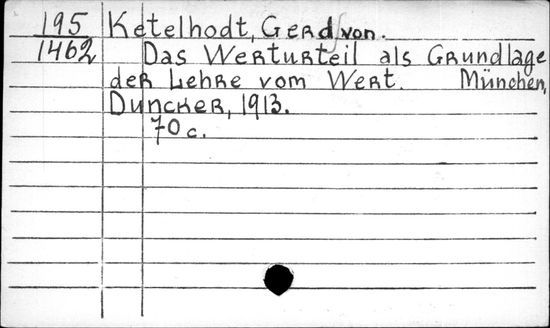 195 Ketelhodt, Gerd von.
1462 Das Werturteil als Grundlage
der Lehre vom Wert. München,
Duncker, 1913.
70 c.